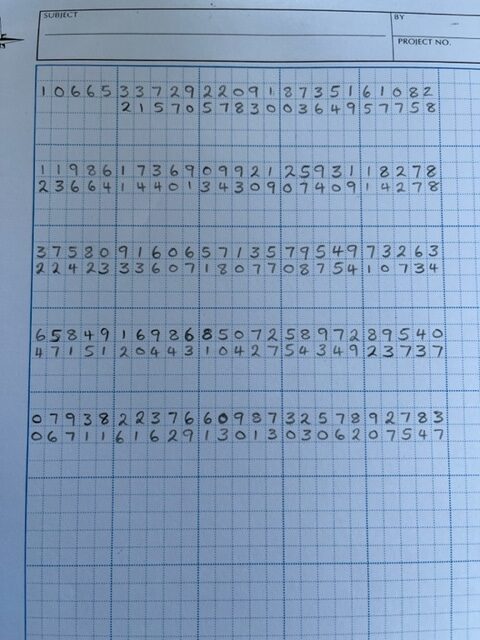 SUBJECT
BY
PROJECT NO.
1 0 6 6 5 3 3 7 2 9 2 2 0 9 1 8 7 3 5 1 6 1 0 8 2
2 1 5 7 0 5 7 8 3 0 0 3 6 4 9 5 7 7 5 8
1 1 9 8 6 1 7 3 6 9 0 9 9 2 1 2 5 9 3 1 1 8 2 7 8
2 3 6 6 4 1 4 4 0 1 3 4 3 0 9 0 7 4 0 9 1 4 2 7 8
3 7 5 8 0 9 1 6 0 6 5 7 1 3 5 7 9 5 4 9 7 3 2 6 3
2 2 4 2 3 3 3 6 0 7 1 8 0 7 7 0 8 7 5 4 1 0 7 3 4
6 5 8 4 9 1 6 9 8 6 8 5 0 7 2 5 8 9 7 2 8 9 5 4 0
4 7 1 5 1 2 0 4 4 3 1 0 4 2 7 5 4 3 4 9 2 3 7 3 7
0 7 9 3 8 2 2 3 7 6 6 0 9 8 7 3 2 5 7 8 9 2 7 8 3
0 6 7 1 1 6 1 6 2 9 1 3 0 1 3 0 3 0 6 2 0 7 5 4 7